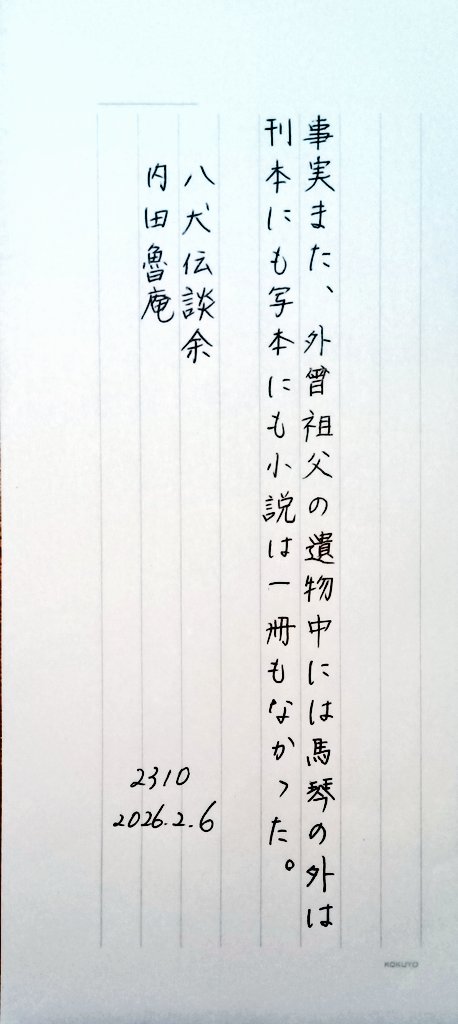 事実また、外曾祖父の遺物中には馬琴の外は
刊本にも写本にも小説は一冊もなかった。
八犬伝談余
内田魯庵
2310
2026.2.6
KOKUYO